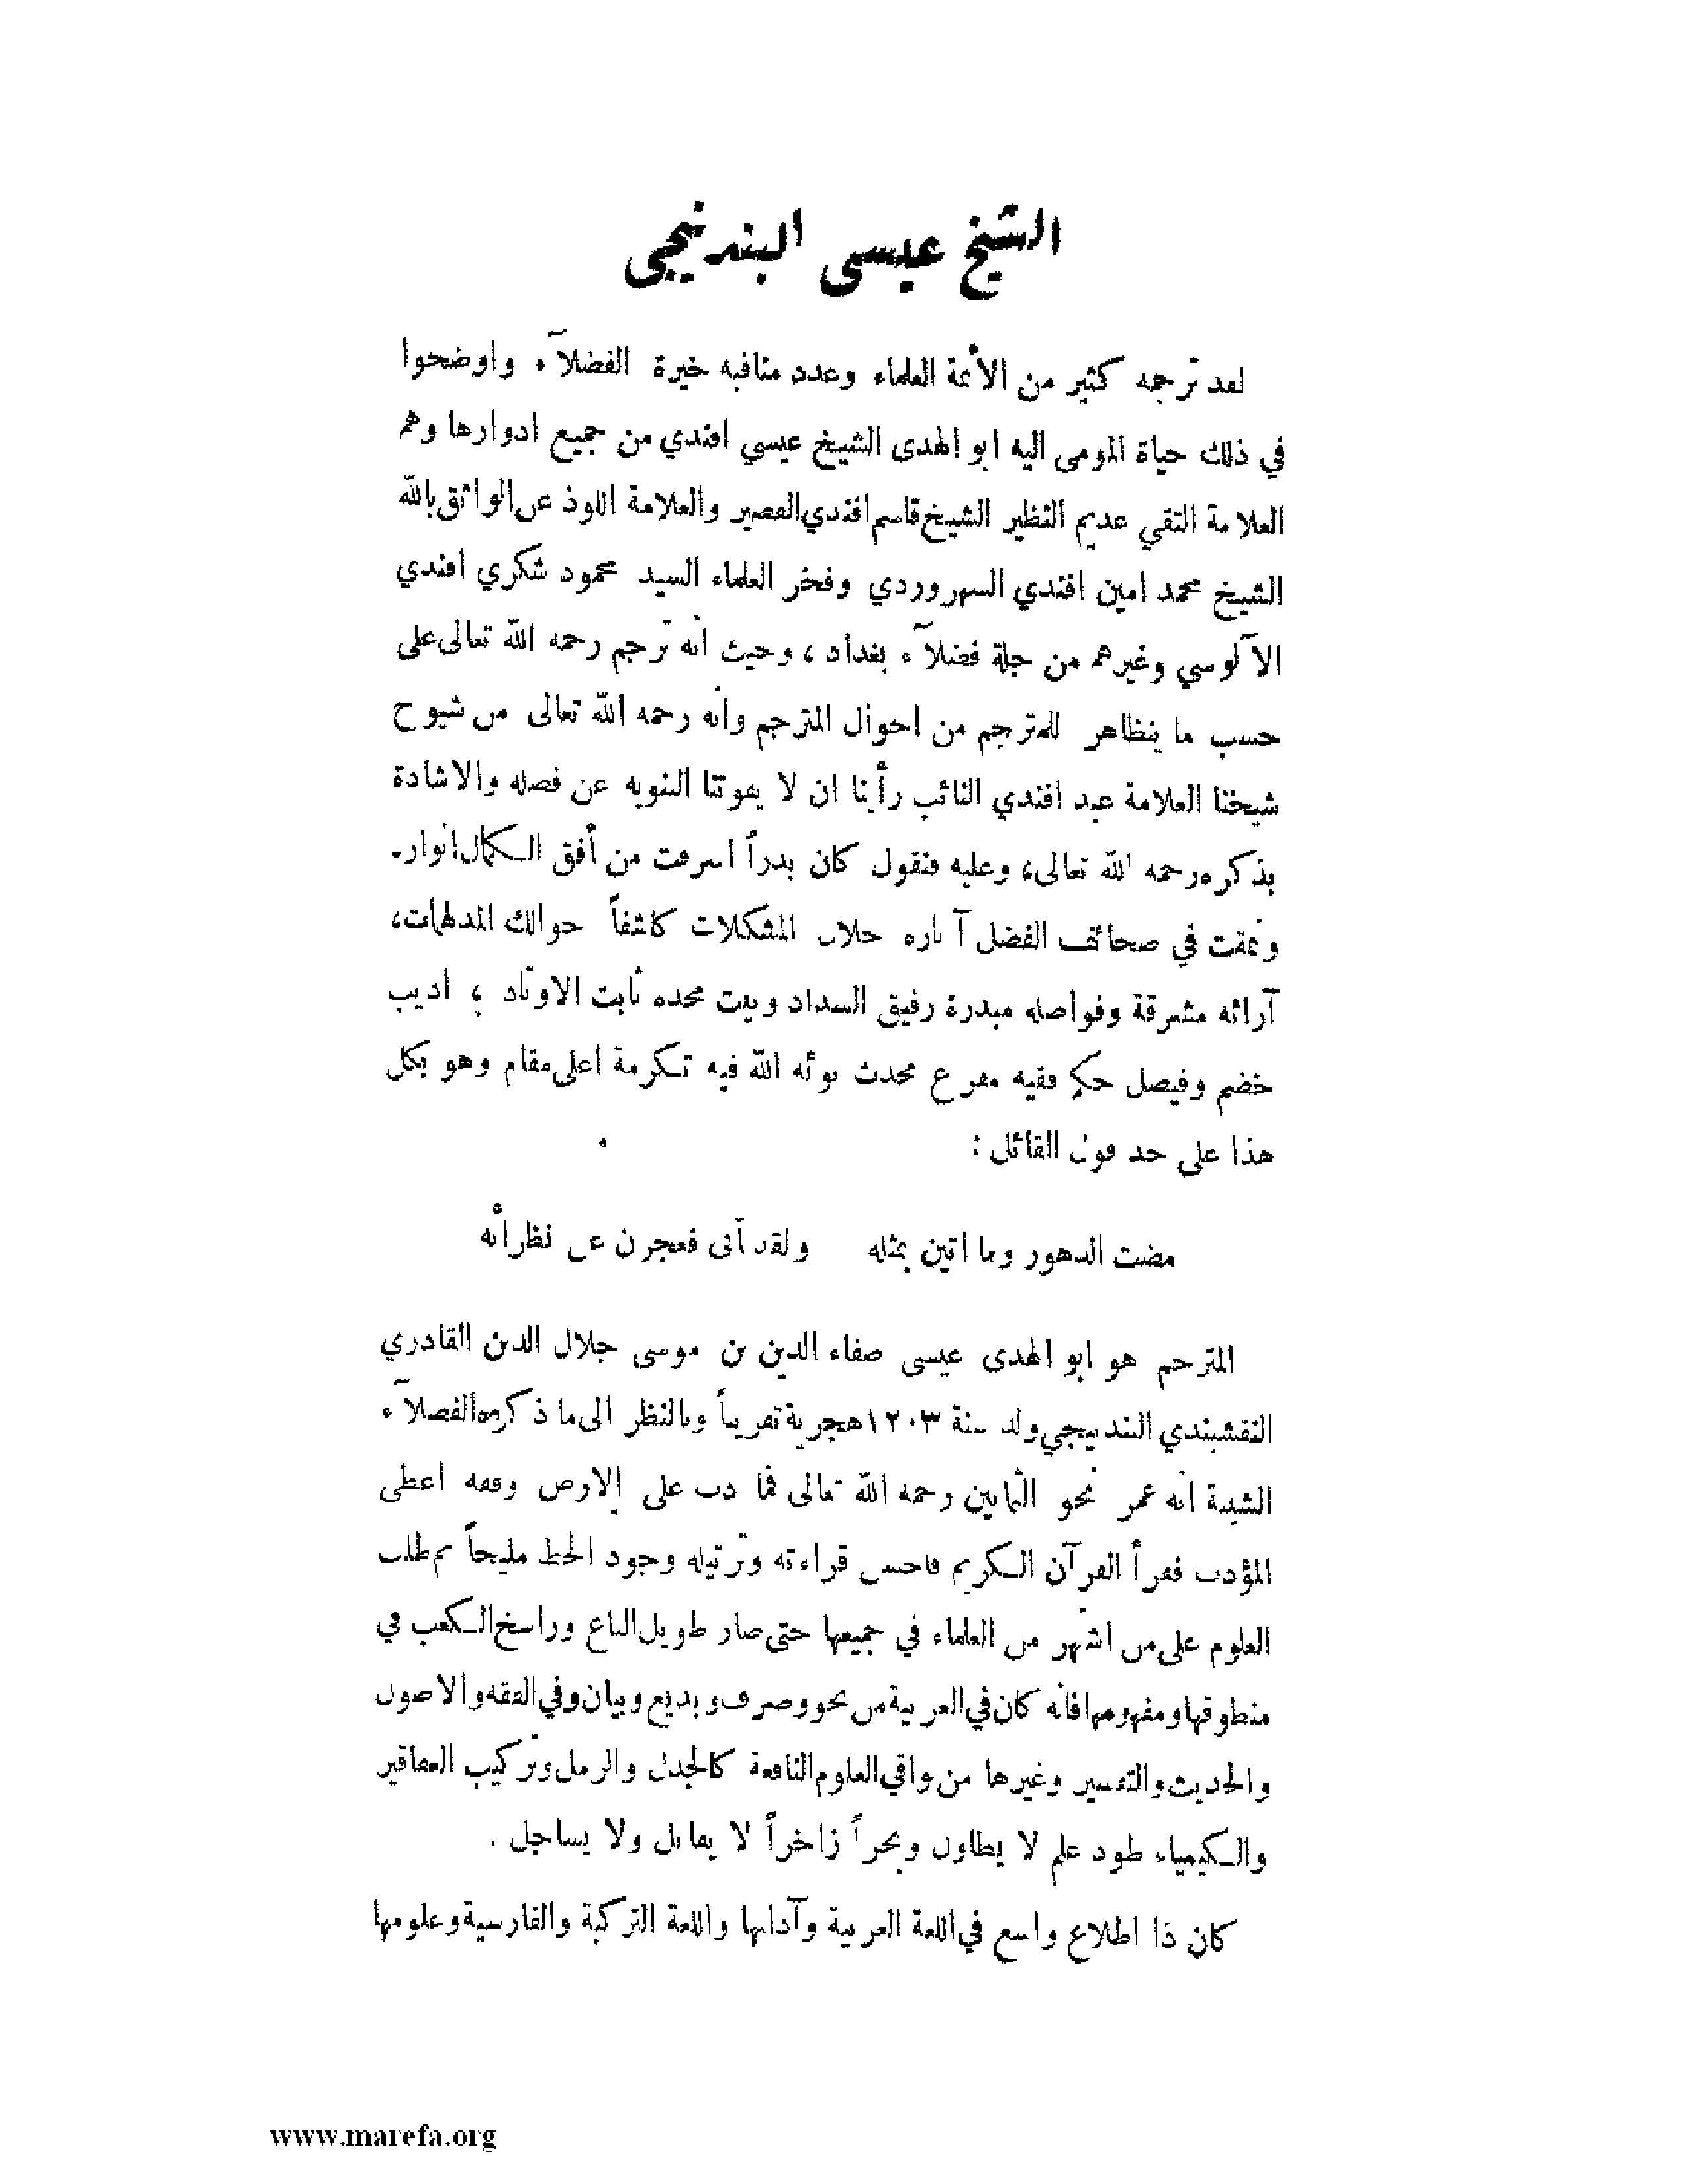 الشيخ عيسى البندنيجي
لقد ترجمه كثير من الأئمة العلماء وعدد مناقبه خيرة الفضلآء واوضحوا
في ذلك حياة المومى اليه ابو الهدى الشيخ عيسي افندي من جميع ادوارها وهم
العلامة التقي عديم النظير الشيخ قاسم افندي القصير والعلامة اللوذعي الواثق بالله
الشيخ محمد امين افندي السهروردي وفخر العلماء السيد محمود شكري افندي
الآلوسي وغيرهم من جلة فضلآء بغداد ، وحيث انه ترجم رحمه الله تعالى على
حسب ما يتظاهر للمترجم من احوال المترجم وانه رحمه الله تعالى من شيوخ
شيخنا العلامة عبد افندي النائب رأينا ان لا يفوتنا التنويه عن فضله والاشادة
بذكره رحمه الله تعالى، وعليه فنقول كان بدراً اسرعت من أفق الكمال انواره
ونمقت في صحائف الفضل آثاره حلال المشكلات كاشفاً حوالك المدلهمات،
آرائه مشرقة وفواصله مبدرة رفيق السداد وبيت مجده ثابت الاوتاد ، اديب
خضم وفيصل حكم فقيه مفرع محدث بوئه الله فيه تكرمة اعلى مقام وهو بكل
هذا على حد قول القائل :
مضت الدهور وما اتين بمثله ولقد أتى فعجزن عن نظرائه
المترجم هو ابو الهدى عيسى صفاء الدين بن موسى جلال الدين القادري
النقشبندي البندنيجي ولد سنة ١٢٠٣ هجرية تقريباً وبالنظر الى ما ذكره الفضلآء
الشيبة انه عمر نحو الثمانين رحمه الله تعالى فما دب على الارض وفقه اعطى
المؤدب فقرأ القرآن الكريم فاحسن قراءته وترتيله وجود الخط مليحاً ثم طلب
العلوم على من اشتهر من العلماء في جميعها حتى صار طويل الباع وراسخ الكعب في
منطوقها ومفهومها فانه كان في العربية من نحو وصرف وبديع وبيان وفي الفقه والاصول
والحديث والتفسير وغيرها من واقي العلوم النافعة كالجدل والرمل وتركيب العقاقير
والكيمياء طود علم لا يطاول وبحراً زاخراً لا يقابل ولا يساجل .
كان ذا اطلاع واسع في اللغة العربية وآدابها واللغة التركية والفارسية وعلومها
www.marefa.org